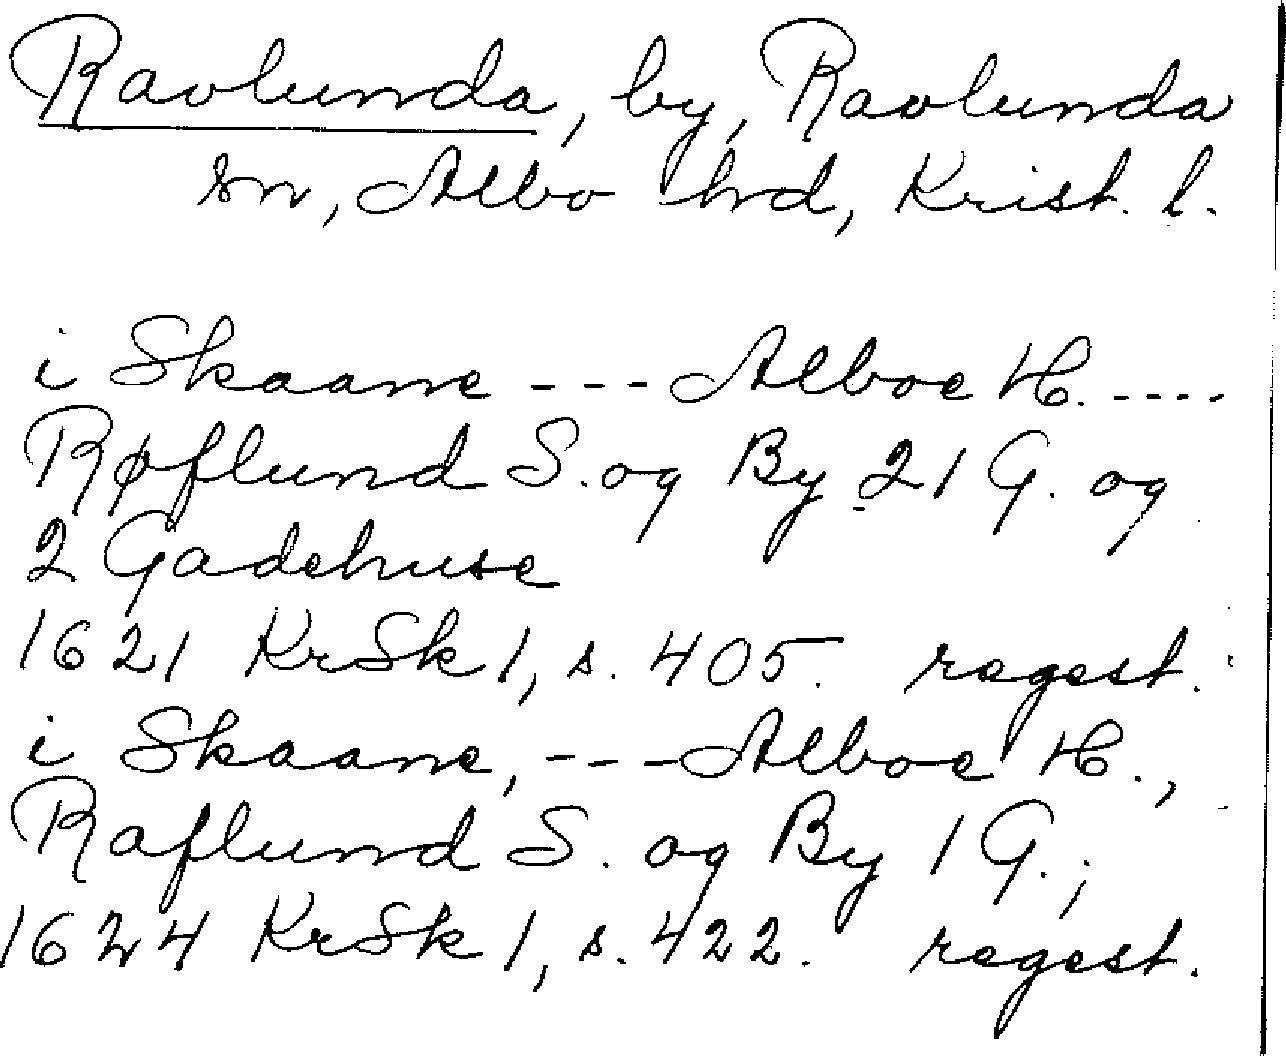 Ravlunda, by, Ravlunda
sn, Albo hd, Krist. l.
i Skaane --- Alboe H. ----
Røflund S. og By 21 G. og
2 Gadehuse
1621 KrSk 1, s. 405. regest.
i Skaane, --- Alboe H.,
Raflund S. og By 1 G.;
1624 KrSk 1, s. 422. regest.